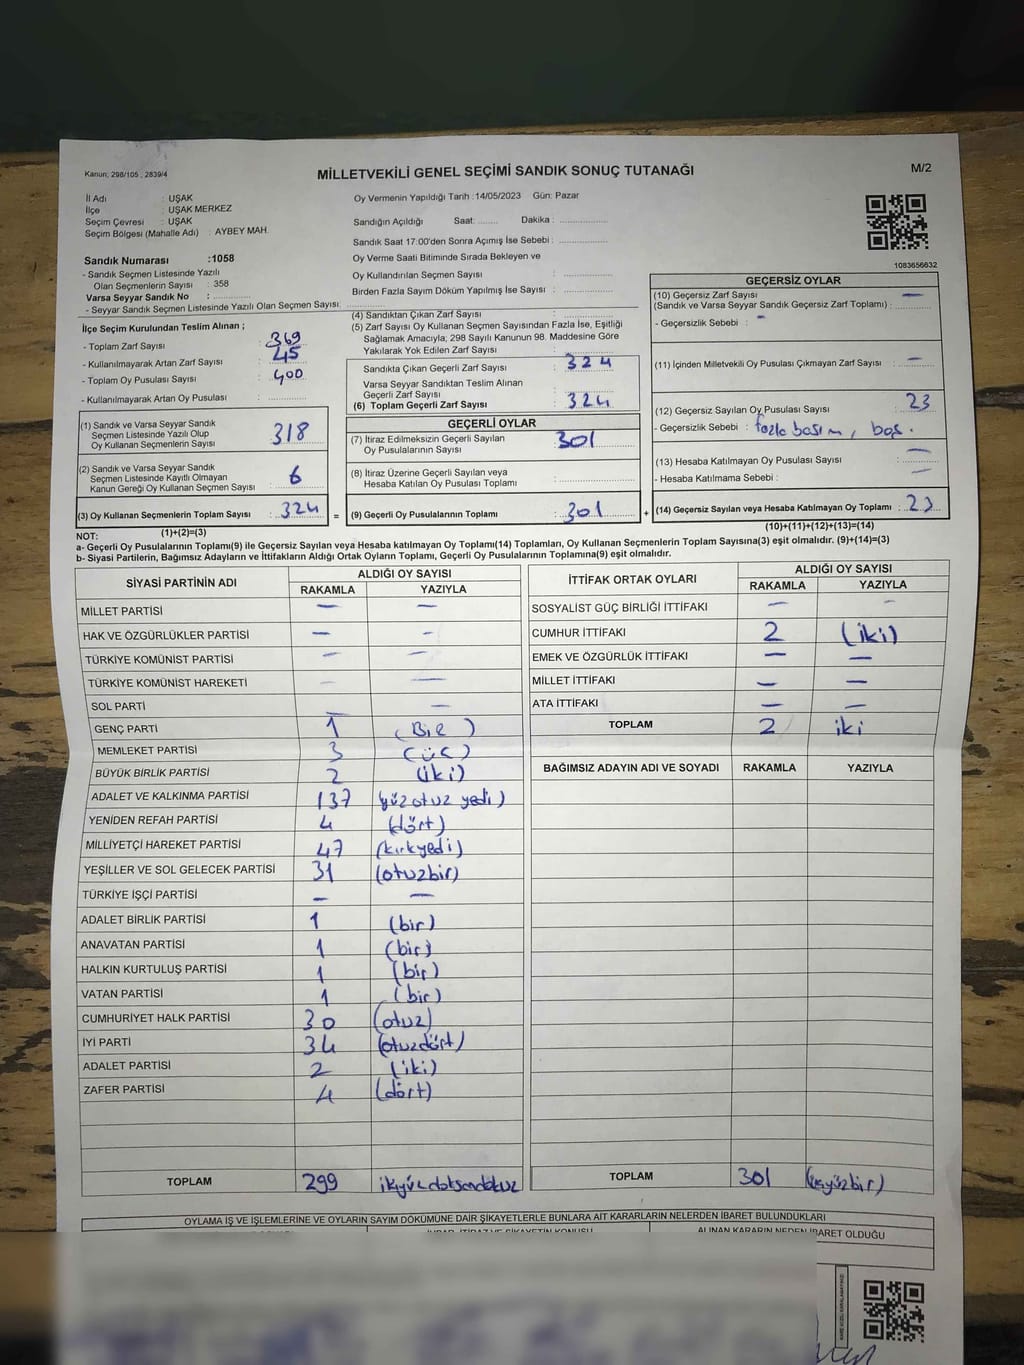 Kanun; 298/105 , 2839/4
MİLLETVEKİLİ GENEL SEÇİMİ SANDIK SONUÇ TUTANAĞI
M/2
İl Adı : UŞAK
İlçe : UŞAK MERKEZ
Seçim Çevresi : UŞAK
Seçim Bölgesi (Mahalle Adı) : AYBEY MAH.
Oy Vermenin Yapıldığı Tarih :14/05/2023 Gün: Pazar
Sandığın Açıldığı Saat: ........ Dakika : ..................
Sandık Saat 17:00'den Sonra Açımış İse Sebebi : ..................
Oy Verme Saati Bitiminde Sırada Bekleyen ve
Oy Kullandırılan Seçmen Sayısı : ..................
Birden Fazla Sayım Döküm Yapılmış İse Sayısı : ..................
1083656632
Sandık Numarası :1058
- Sandık Seçmen Listesinde Yazılı
Olan Seçmenlerin Sayısı : 358
Varsa Seyyar Sandık No : ..................
- Seyyar Sandık Seçmen Listesinde Yazılı Olan Seçmen Sayısı: ..................
İlçe Seçim Kurulundan Teslim Alınan ;
- Toplam Zarf Sayısı : 369
- Kullanılmayarak Artan Zarf Sayısı : 45
- Toplam Oy Pusulası Sayısı : 400
- Kullanılmayarak Artan Oy Pusulası : ..................
(1) Sandık ve Varsa Seyyar Sandık
Seçmen Listesinde Yazılı Olup
Oy Kullanan Seçmenlerin Sayısı : 318
(2) Sandık ve Varsa Seyyar Sandık
Seçmen Listesinde Kayıtlı Olmayan
Kanun Gereği Oy Kullanan Seçmen Sayısı : 6
(3) Oy Kullanan Seçmenlerin Toplam Sayısı : 324 =
(4) Sandıktan Çıkan Zarf Sayısı : ..................
(5) Zarf Sayısı Oy Kullanan Seçmen Sayısından Fazla İse, Eşitliği
Sağlamak Amacıyla; 298 Sayılı Kanunun 98. Maddesine Göre
Yakılarak Yok Edilen Zarf Sayısı : ..................
Sandıkta Çıkan Geçerli Zarf Sayısı : 324
Varsa Seyyar Sandıktan Teslim Alınan
Geçerli Zarf Sayısı : ..................
(6) Toplam Geçerli Zarf Sayısı : 324
GEÇERLİ OYLAR
(7) İtiraz Edilmeksizin Geçerli Sayılan
Oy Pusulalarının Sayısı : 301
(8) İtiraz Üzerine Geçerli Sayılan veya
Hesaba Katılan Oy Pusulası Toplamı : ..................
(9) Geçerli Oy Pusulalarının Toplamı : 301 +
GEÇERSİZ OYLAR
(10) Geçersiz Zarf Sayısı : —
(Sandık ve Varsa Seyyar Sandık Geçersiz Zarf Toplamı) :
- Geçersizlik Sebebi : –
(11) İçinden Milletvekili Oy Pusulası Çıkmayan Zarf Sayısı : —
(12) Geçersiz Sayılan Oy Pusulası Sayısı : 23
- Geçersizlik Sebebi : fazla basım, boş.
(13) Hesaba Katılmayan Oy Pusulası Sayısı : —
- Hesaba Katılmama Sebebi : —
(14) Geçersiz Sayılan veya Hesaba Katılmayan Oy Toplamı : 23
NOT: (1)+(2)=(3) (10)+(11)+(12)+(13)=(14)
a- Geçerli Oy Pusulalarının Toplamı(9) ile Geçersiz Sayılan veya Hesaba katılmayan Oy Toplamı(14) Toplamları, Oy Kullanan Seçmenlerin Toplam Sayısına(3) eşit olmalıdır. (9)+(14)=(3)
b- Siyasi Partilerin, Bağımsız Adayların ve İttifakların Aldığı Ortak Oyların Toplamı, Geçerli Oy Pusulalarının Toplamına(9) eşit olmalıdır.
SİYASİ PARTİNİN ADI ALDIĞI OY SAYISI
RAKAMLA YAZIYLA
MİLLET PARTİSİ — —
HAK VE ÖZGÜRLÜKLER PARTİSİ — –
TÜRKİYE KOMÜNİST PARTİSİ — —
TÜRKİYE KOMÜNİST HAREKETİ — —
SOL PARTİ — —
GENÇ PARTİ 1 (Bir)
MEMLEKET PARTİSİ 3 (üç)
BÜYÜK BİRLİK PARTİSİ 2 (iki)
ADALET VE KALKINMA PARTİSİ 137 (yüz otuz yedi)
YENİDEN REFAH PARTİSİ 4 (dört)
MİLLİYETÇİ HAREKET PARTİSİ 47 (kırkyedi)
YEŞİLLER VE SOL GELECEK PARTİSİ 31 (otuzbir)
TÜRKİYE İŞÇİ PARTİSİ — —
ADALET BİRLİK PARTİSİ 1 (bir)
ANAVATAN PARTİSİ 1 (bir)
HALKIN KURTULUŞ PARTİSİ 1 (bir)
VATAN PARTİSİ 1 (bir)
CUMHURİYET HALK PARTİSİ 30 (otuz)
İYİ PARTİ 34 (otuzdört)
ADALET PARTİSİ 2 (iki)
ZAFER PARTİSİ 4 (dört)
TOPLAM 299 ikiyüzdoksandokuz
İTTİFAK ORTAK OYLARI ALDIĞI OY SAYISI
RAKAMLA YAZIYLA
SOSYALİST GÜÇ BİRLİĞİ İTTİFAKI — –
CUMHUR İTTİFAKI 2 (iki)
EMEK VE ÖZGÜRLÜK İTTİFAKI — —
MİLLET İTTİFAKI — —
ATA İTTİFAKI — —
TOPLAM 2 iki
BAĞIMSIZ ADAYIN ADI VE SOYADI RAKAMLA YAZIYLA
TOPLAM 301 (üçyüzbir)
OYLAMA İŞ VE İŞLEMLERİNE VE OYLARIN SAYIM DÖKÜMÜNE DAİR ŞİKAYETLERLE BUNLARA AİT KARARLARIN NELERDEN İBARET BULUNDUKLARI
ALINAN KARARIN NEDEN İBARET OLDUĞU